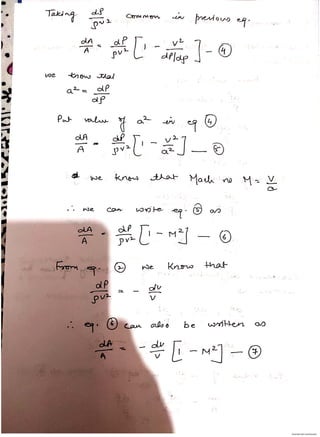 Taking dP/ρv² common in previous eq.
dA/A = dP/ρv² [1 - v²/dP/dρ] - ④
we know that
a² = dP/dρ
Put value of a² in eq ④
dA/A = dP/ρv² [1 - v²/a²] - ⑤
we know that Mach no M = V/a
∴ we can write eq. ⑤ as
dA/A = dP/ρv² [1 - M²] - ⑥
From eq. ② we know that
dP/ρv² = - dv/v
∴ eq. ⑥ can also be written as
dA/A = - dv/v [1 - M²] - ⑦